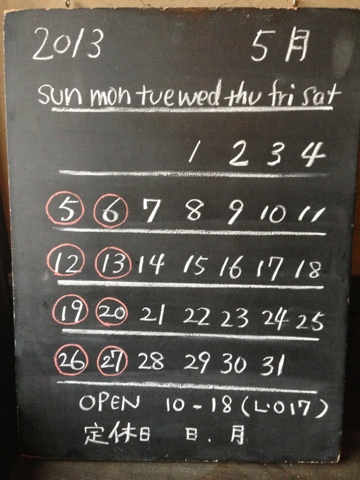 2013 5月
sun mon tue wed thu fri sat
1 2 3 4
5 6 7 8 9 10 11
12 13 14 15 16 17 18
19 20 21 22 23 24 25
26 27 28 29 30 31
OPEN 10-18 (L.O17)
定休日 日、月